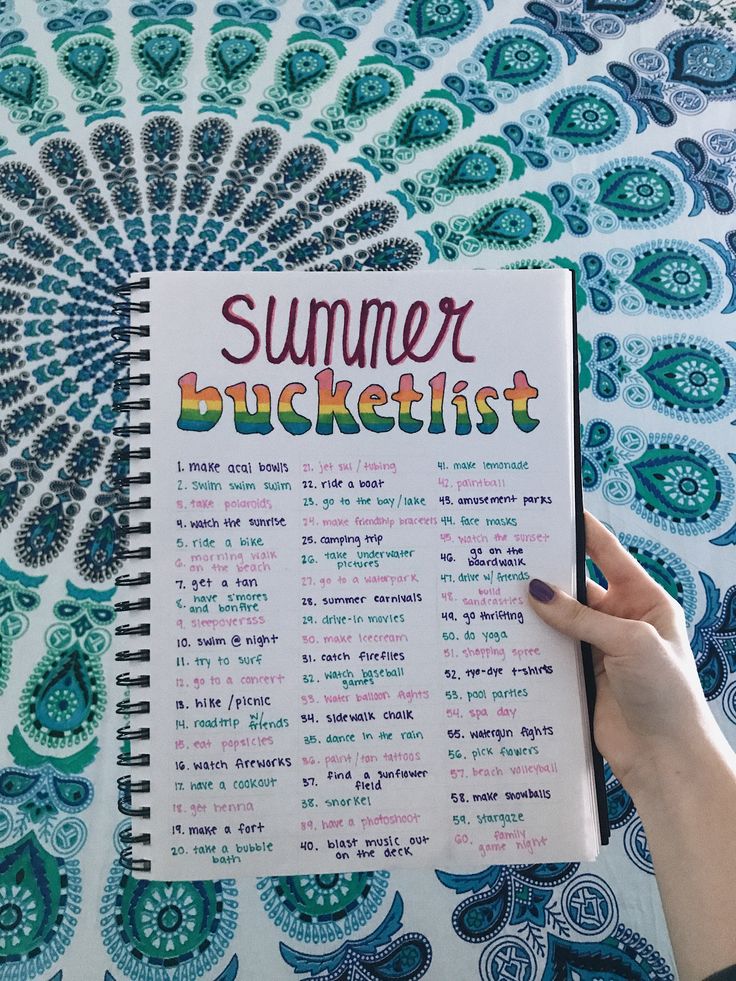 summer
bucketlist
1. make acai bowls
2. swim swim swim
3. take polaroids
4. watch the sunrise
5. ride a bike
6. morning walk
on the beach
7. get a tan
8. have s'mores
and bonfire
9. sleepoversss
10. swim @ night
11. try to surf
12. go to a concert
13. hike / picnic
14. roadtrip w/
friends
15. eat popsicles
16. watch fireworks
17. have a cookout
18. get henna
19. make a fort
20. take a bubble
bath
21. jet ski / tubing
22. ride a boat
23. go to the bay / lake
24. make friendship bracelets
25. camping trip
26. take underwater
pictures
27. go to a waterpark
28. summer carnivals
29. drive-in movies
30. make icecream
31. catch fireflies
32. watch baseball
games
33. water balloon fights
34. sidewalk chalk
35. dance in the rain
36. paint / tan tattoos
37. find a sunflower
field
38. snorkel
39. have a photoshoot
40. blast music out
on the deck
41. make lemonade
42. paintball
43. amusement parks
44. face masks
45. watch the sunset
46. go on the
boardwalk
47. drive w/ friends
48. build
sandcastles
49. go thrifting
50. do yoga
51. shopping spree
52. tye-dye t-shirts
53. pool parties
54. spa day
55. watergun fights
56. pick flowers
57. beach volleyball
58. make snowballs
59. stargaze
60. family
game night